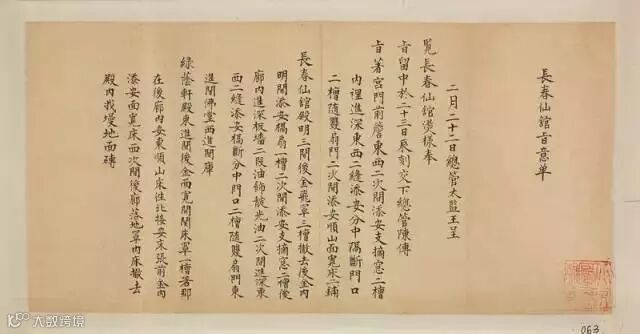 長春仙館旨意单
二月二十二日總管太監王呈
覧長春仙館燙樣奉
旨留中於二十三日辰刻交下總管陳傳
旨著宮門前簷東西二次間添安支摘窓二槽
内裡進深東西二縫添安分中隔斷門口
二槽隨雙扇門二次間添安順山面寛床一鋪
長春仙館殿明三間後金飛罩三槽撤去後金内
明間添安槅扇一槽二次間添安支摘窓二槽後
廊内進深板墙二段油飾靛光油二次間進深東
西二縫添安槅斷分中門口二槽隨雙扇門東
進間佛堂西進間庫
綠蔭軒殿東進間後金面寛間床罩一槽著那
在後廊内安東順山床往北接安床張前金内
添安面寛床西次間後廊落地罩内床撤去
殿内找墁地面磚
063
大数跨境